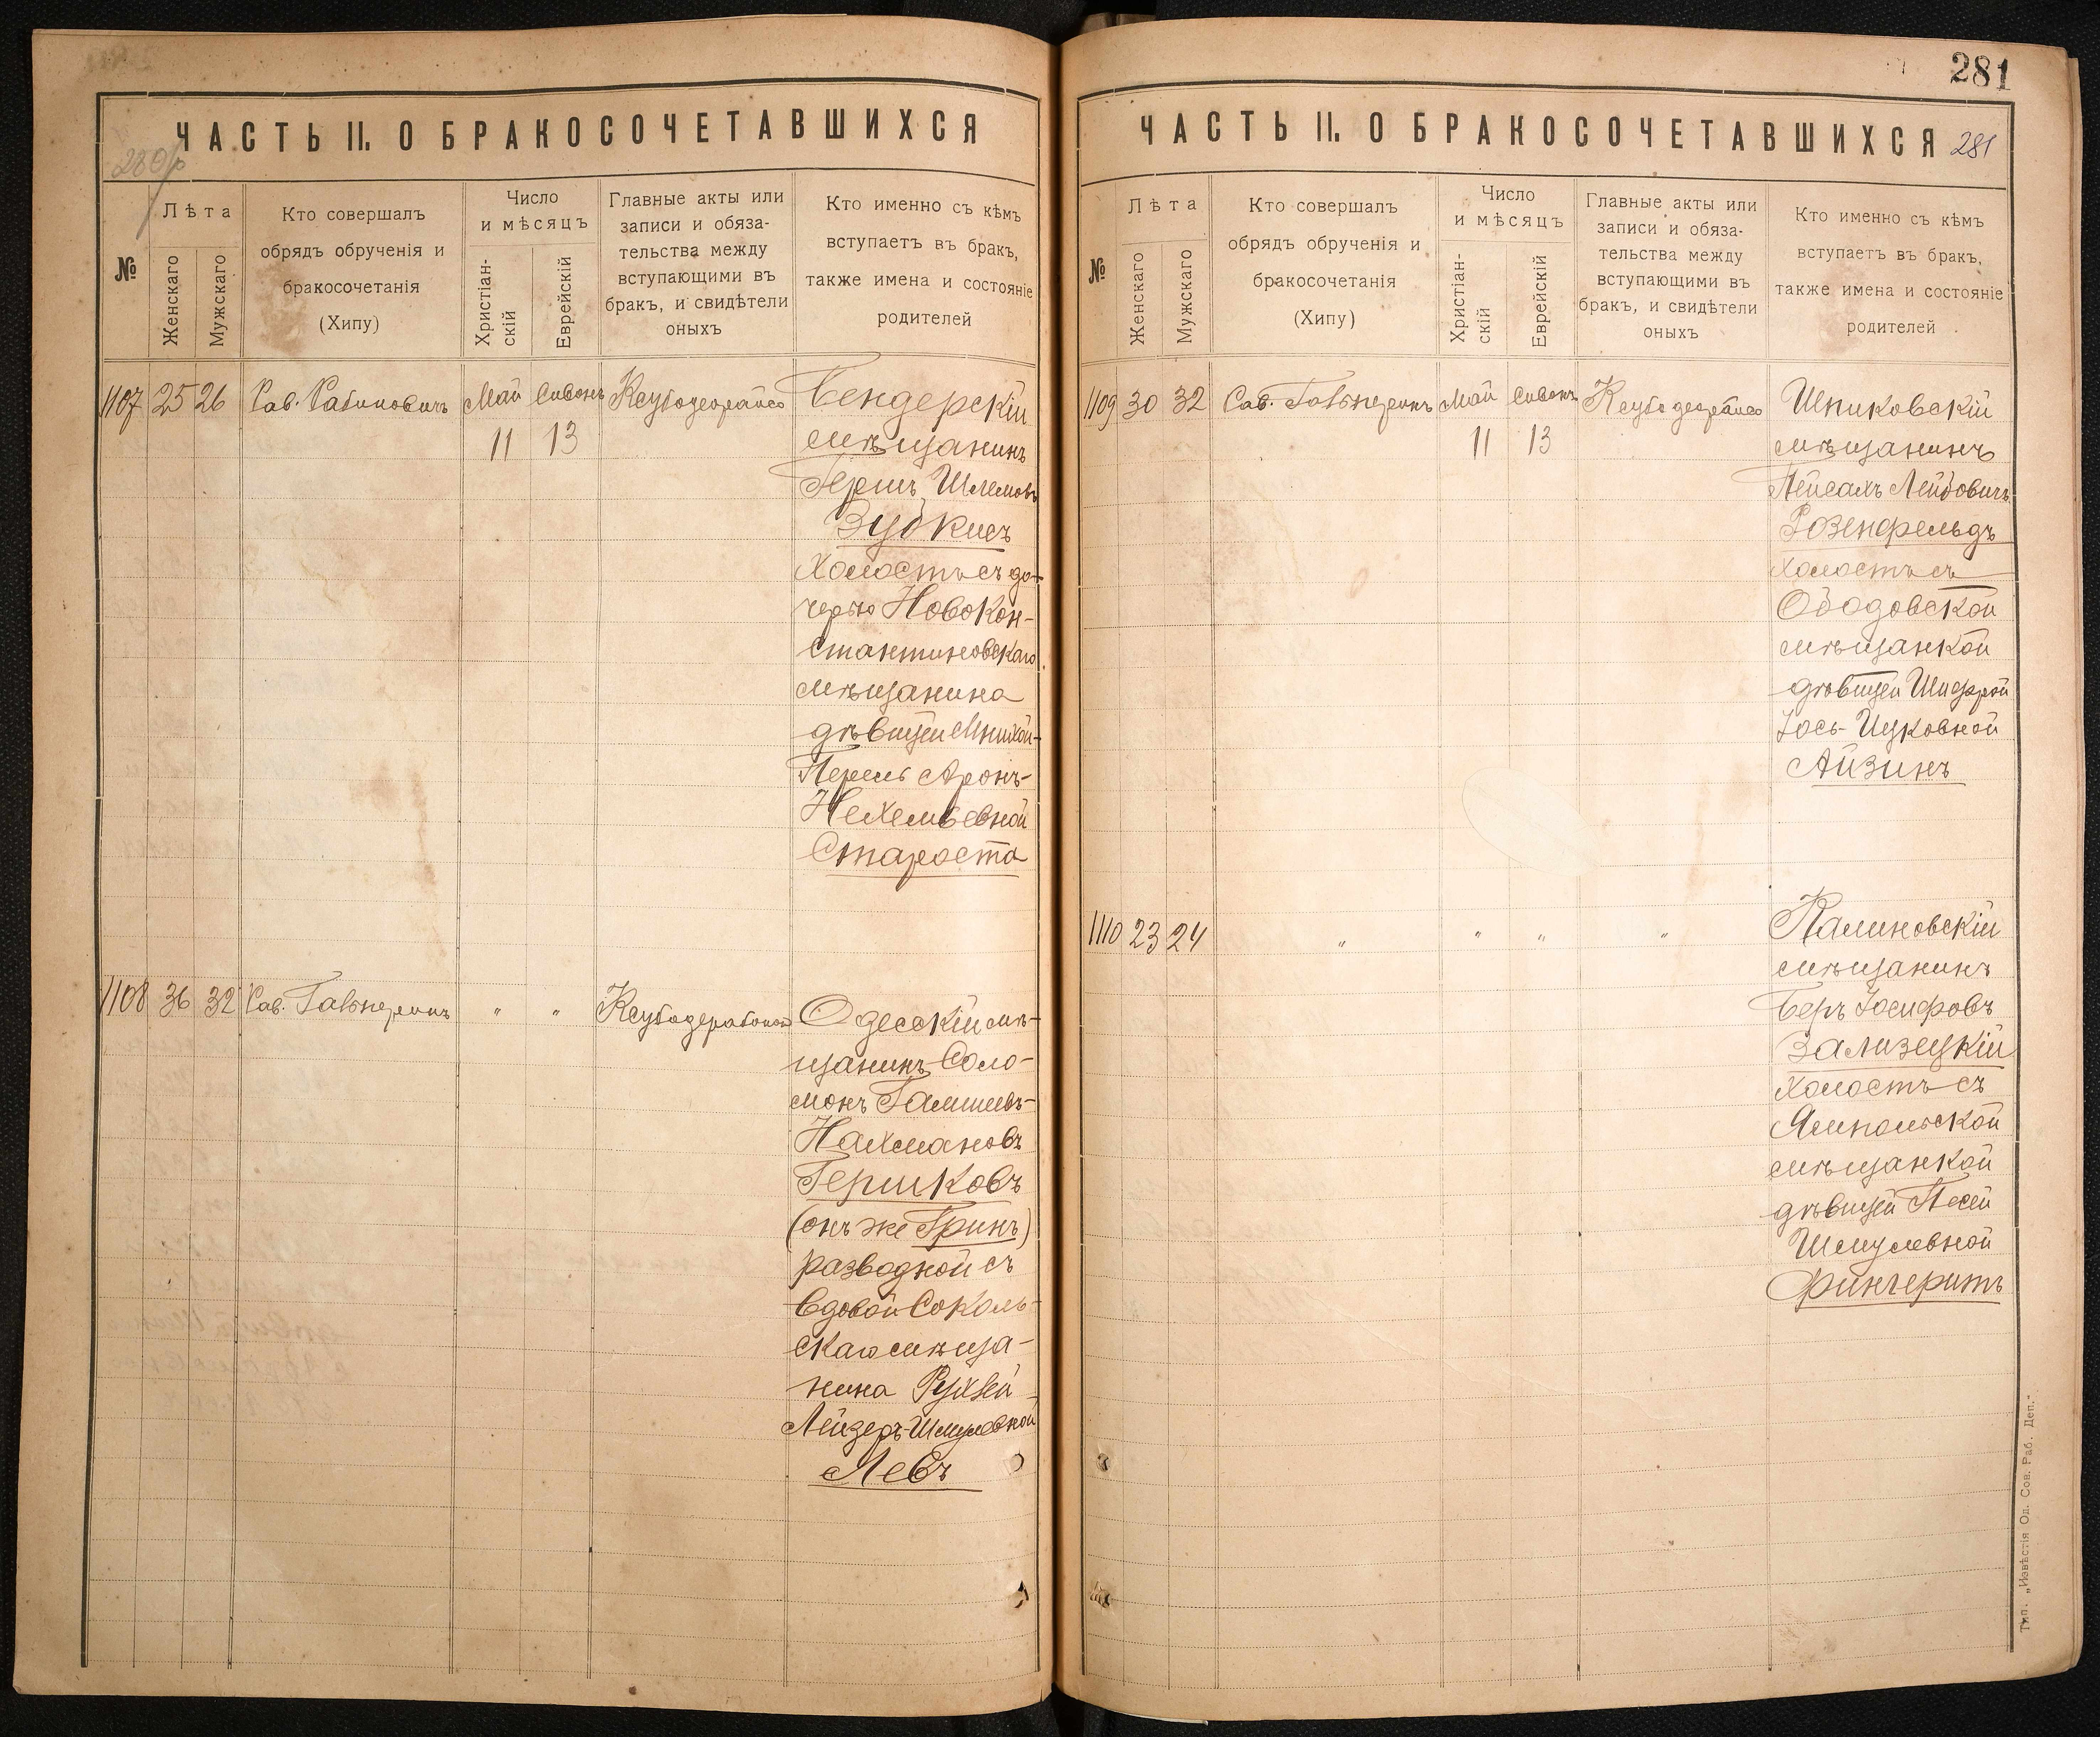 ЧАСТЬ II. О БРАКОСОЧЕТАВШИХСЯ
280
№
Лѣта
Женскаго
Мужскаго
Кто совершалъ
обрядъ обрученія и
бракосочетанія
(Хипу)
Число
и мѣсяцъ
Христіан-
скій
Еврейскій
Главные акты или
записи и обяза-
тельства между
вступающими въ
бракъ, и свидѣтели
оныхъ
Кто именно съ кѣмъ
вступаетъ въ бракъ,
также имена и состояніе
родителей
1107 25 26 Рав. Рабиновичъ Май Сивонъ
11 13
Бендерскій
мѣщанинъ
Гершъ Шлемовъ
Зубкисъ
Холостъ съ до-
черью Новокон-
стантиновскаго
мѣщанина
дѣвицей
Перель Аронъ-
Нехемьевной
Староста
1108 36 32 Рав. Гальперинъ " "
Одесскій мѣ-
щанинъ Соло-
монъ
Нахмановъ
Гершковъ
(онъ же Гринъ)
разводной съ
вдовой Соколь-
скаго мѣща-
нина Рухлей
Лейзеръ-Шмулевной
Левъ
281
ЧАСТЬ II. О БРАКОСОЧЕТАВШИХСЯ 281
№
Лѣта
Женскаго
Мужскаго
Кто совершалъ
обрядъ обрученія и
бракосочетанія
(Хипу)
Число
и мѣсяцъ
Христіан-
скій
Еврейскій
Главные акты или
записи и обяза-
тельства между
вступающими въ
бракъ, и свидѣтели
оныхъ
Кто именно съ кѣмъ
вступаетъ въ бракъ,
также имена и состояніе
родителей
1109 30 32 Рав. Гальперинъ Май Сивонъ
11 13
Шпиковскій
мѣщанинъ
Пейсахъ Лейбовичъ
Розенфельдъ
холостъ съ
Ободовской
мѣщанкой
дѣвицей Шифрой
Іось-Ицковной
Айзинъ
1110 23 24 " " " "
Калиновскій
мѣщанинъ
Беръ Іосифовъ
Зализецкій
холостъ съ
Ямпольской
мѣщанкой
дѣвицей Песей
Шмулевной
Фингеритъ
Тип. „Извѣстія Од. Сов. Раб. Деп."